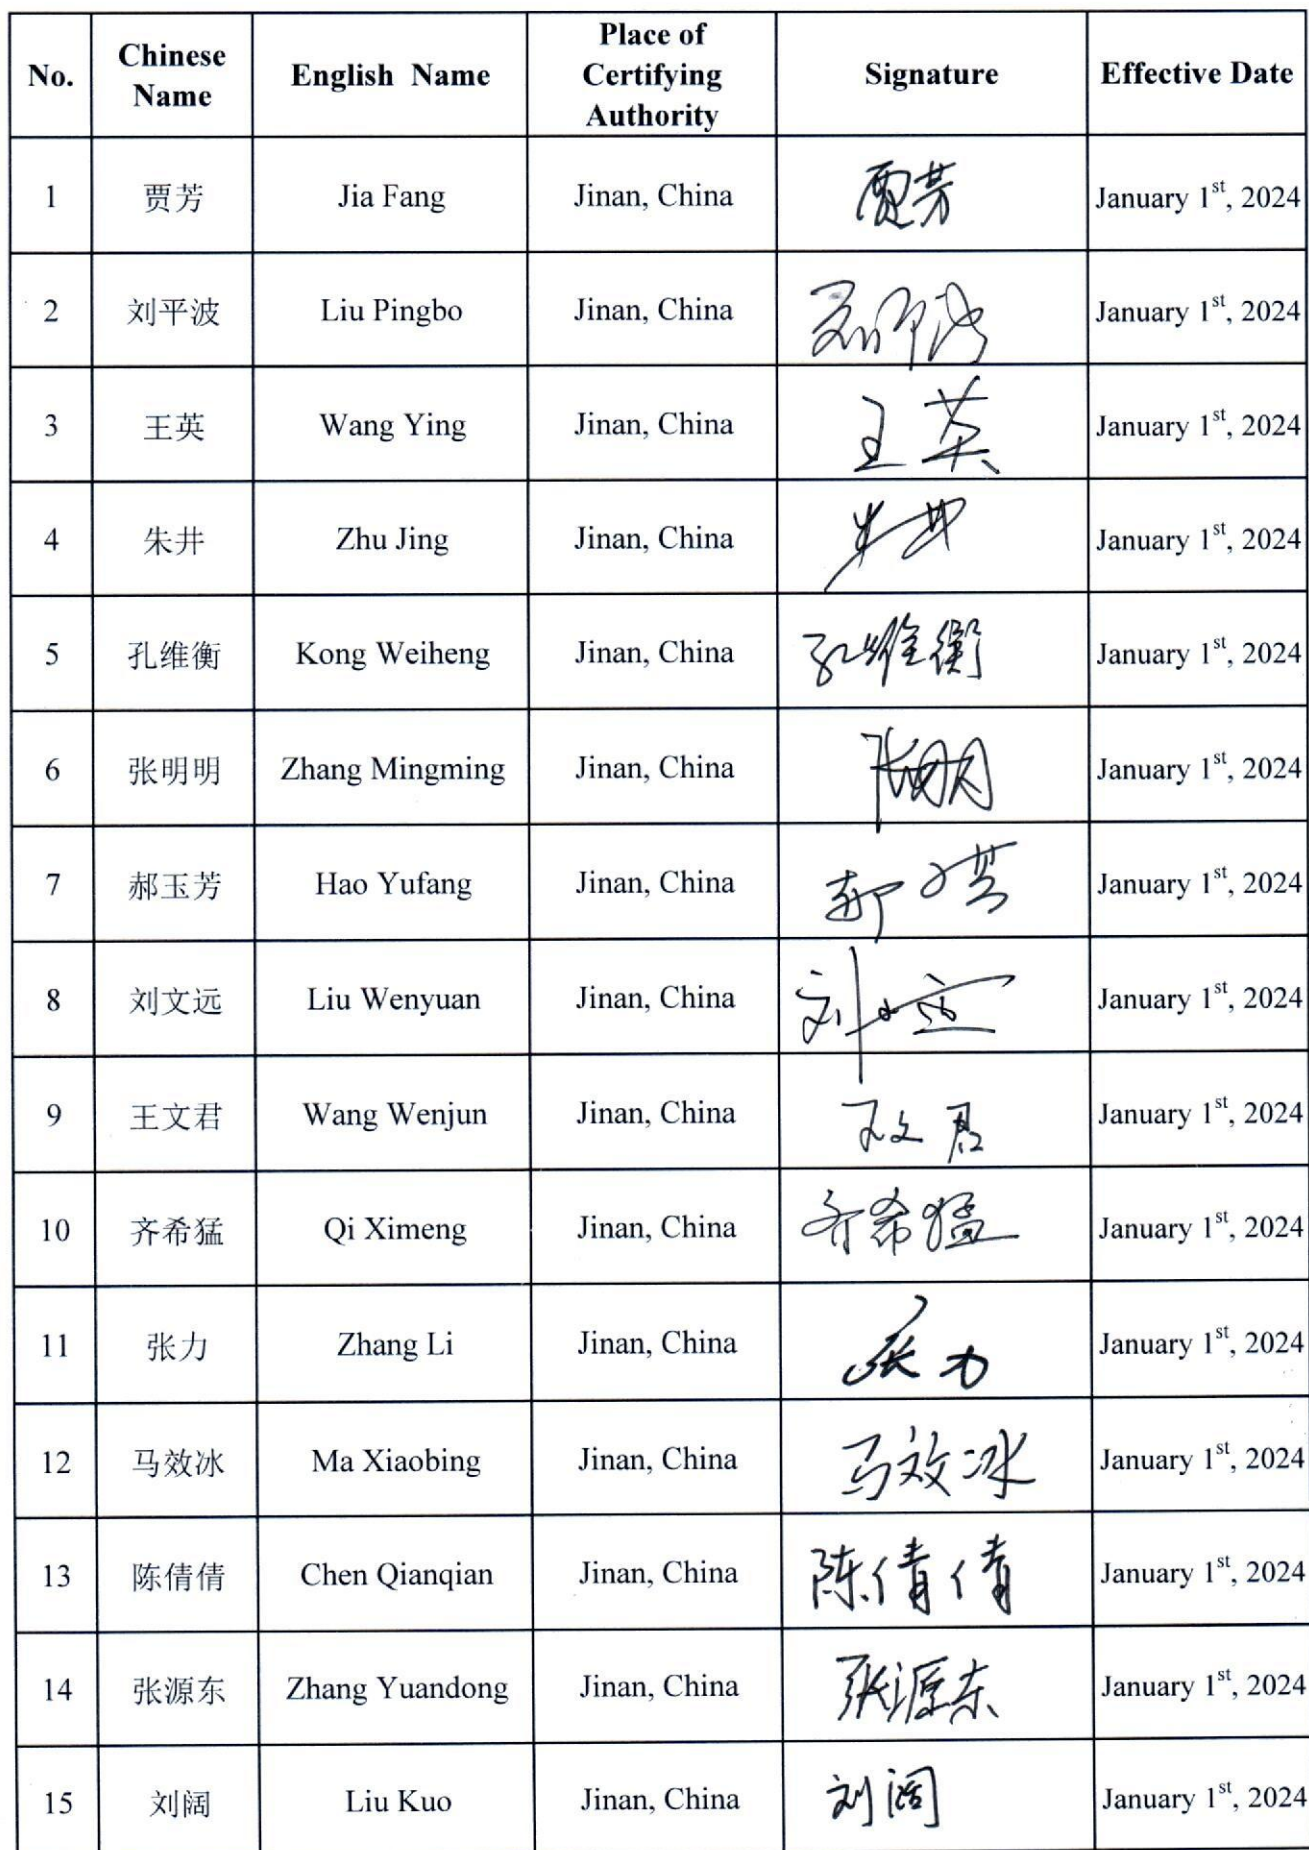 No. Chinese Name English Name Place of Certifying Authority Signature Effective Date
1 贾芳 Jia Fang Jinan, China 贾芳 January 1st, 2024
2 刘平波 Liu Pingbo Jinan, China 刘平波 January 1st, 2024
3 王英 Wang Ying Jinan, China 王英 January 1st, 2024
4 朱井 Zhu Jing Jinan, China 朱井 January 1st, 2024
5 孔维衡 Kong Weiheng Jinan, China 孔维衡 January 1st, 2024
6 张明明 Zhang Mingming Jinan, China January 1st, 2024
7 郝玉芳 Hao Yufang Jinan, China January 1st, 2024
8 刘文远 Liu Wenyuan Jinan, China January 1st, 2024
9 王文君 Wang Wenjun Jinan, China 王文君 January 1st, 2024
10 齐希猛 Qi Ximeng Jinan, China 齐希猛 January 1st, 2024
11 张力 Zhang Li Jinan, China 张力 January 1st, 2024
12 马效冰 Ma Xiaobing Jinan, China 马效冰 January 1st, 2024
13 陈倩倩 Chen Qianqian Jinan, China 陈倩倩 January 1st, 2024
14 张源东 Zhang Yuandong Jinan, China 张源东 January 1st, 2024
15 刘阔 Liu Kuo Jinan, China 刘阔 January 1st, 2024